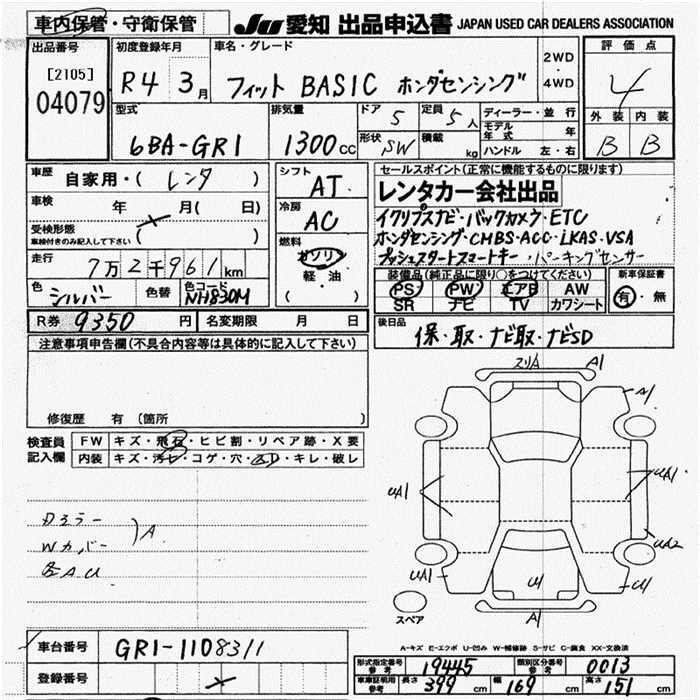 車内保管・守衛保管
JU 愛知 出品申込書 JAPAN USED CAR DEALERS ASSOCIATION
出品番号 初度登録年月 車名・グレード 評価点
[2105]
04079
R4 3月
フィット BASIC ホンダセンシング
2WD
・
4WD
4
型式 排気量 ドア 5 定員 5人 ディーラー・並行 外装 内装
6BA-GR1 1300cc
形状 SW 積載 kg
モデル年式 年
ハンドル 左・右
B B
車歴 自家用・(レンタ)
車検 年 月(日)
受検形態
車検付きのみ記入して下さい ( )
走行 7万2千961km
色 シルバー 色替 色コード NH830M
シフト AT
冷房 AC
燃料
ガソリン
軽・油
( )
セールスポイント(正常に機能するものに限ります)
レンタカー会社出品
イクリプスナビ・バックカメラ・ETC
ホンダセンシング・CMBS・ACC・LKAS・VSA
プッシュスタートスマートキー・パーキングセンサー
装備品(純正品に限り○をつけてください) 新車保証書
PS PW エアB AW
SR ナビ TV カワシート
有・無
R券 9350円 名変期限 月 日
後日品
保・取・ナビ取・ナビSD
注意事項申告欄(不具合内容等は具体的に記入して下さい)
修復歴 有(箇所 )
検査員記入欄
FW キズ・飛石・ヒビ割・リペア跡・X要
内装 キズ・汚レ・コゲ・穴・スレ・キレ・破レ
Wカバー
A
スリA A1
A1
UA1 UA1
UA2
UA1 U1 U1
A1
スペア
A-キズ E-エクボ U-凹み W-補修跡 S-サビ C-腐食 XX-交換済
車台番号 GR1-1108311
登録番号
形式指定番号 参考 19445 類別区分番号 参考 0013
車庫証明用 参考 長さ 399cm 幅 169cm 高さ 151cm